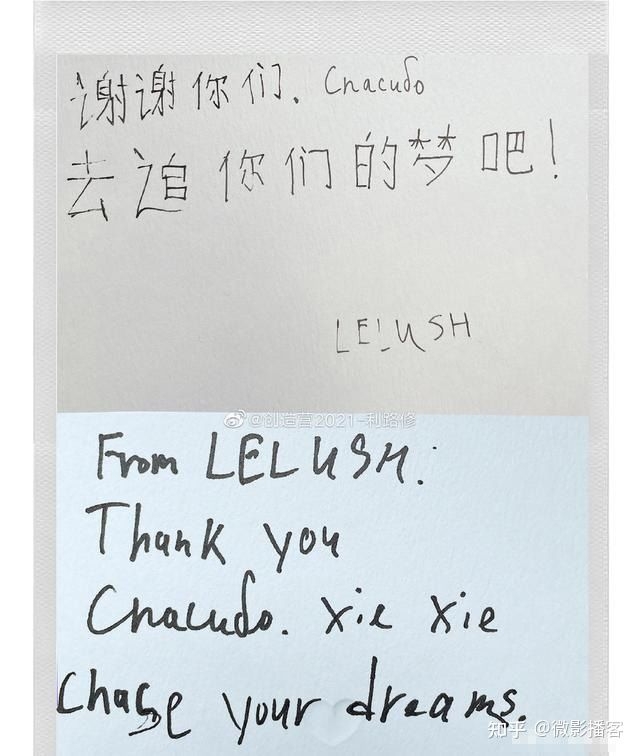 谢谢你们. Спасибо
去追你们的梦吧!
LELUSH
@创造营2021-利路修
From LELUSH:
Thank you
Спасибо. Xie Xie
Chase your dreams.
知乎 @微影播客